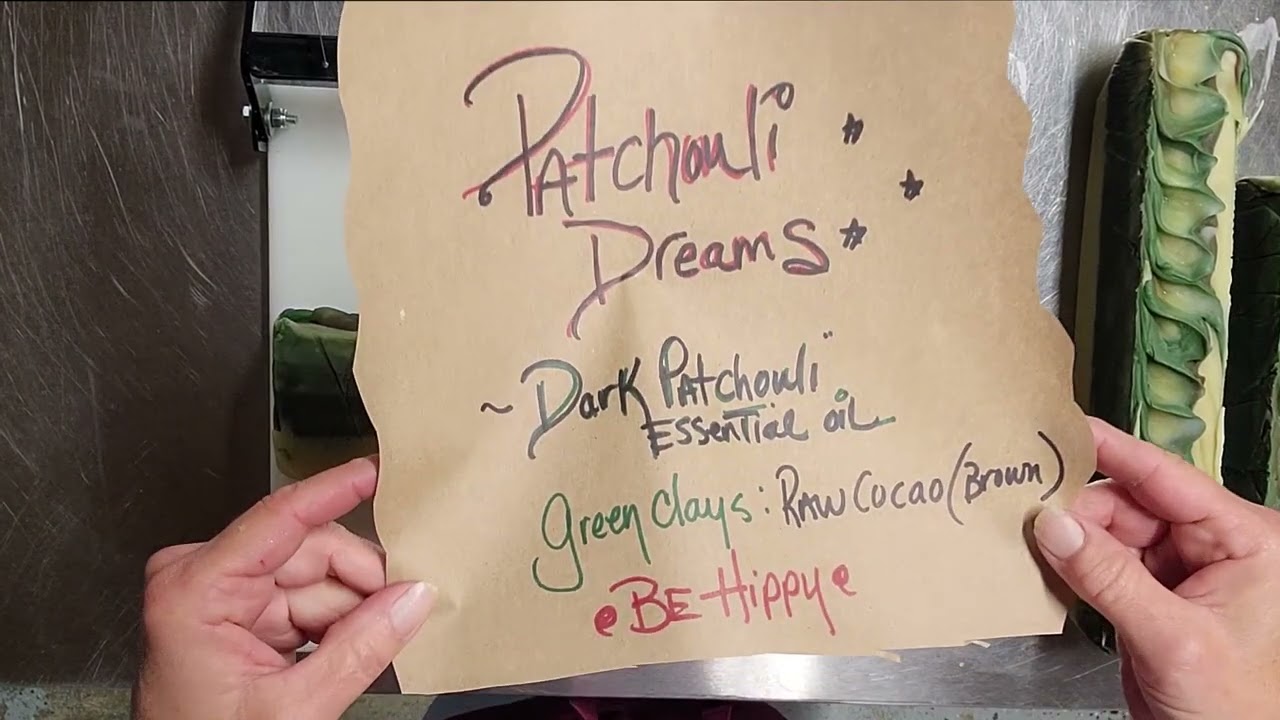 Patchouli
Dreams
~ Dark Patchouli
Essential oil
Green Clays: Raw Cocao (Brown)
Be Hippy